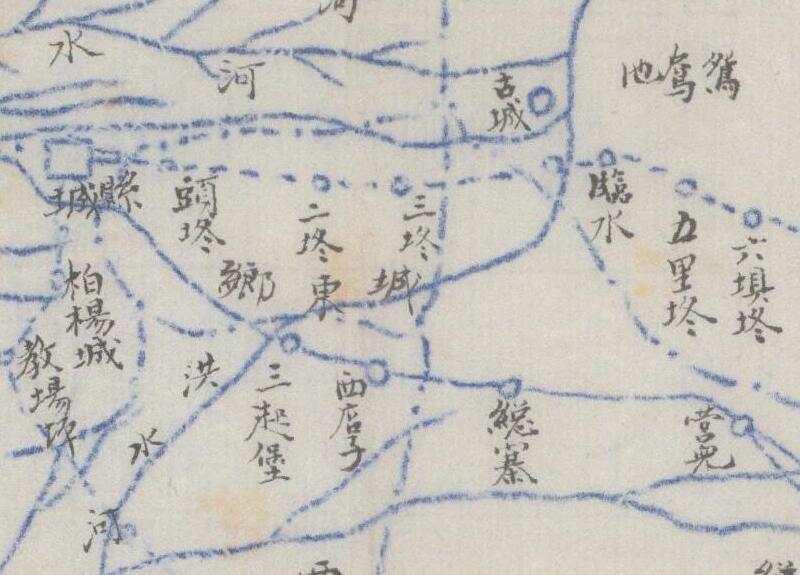 河
水
河
古城
鴛鴦池
縣城
頭墩
二墩
三墩
臨水
五里墩
六垻墩
城東鄉
柏楊城
教場坪
洪水河
三起堡
西店子
總寨
營兒